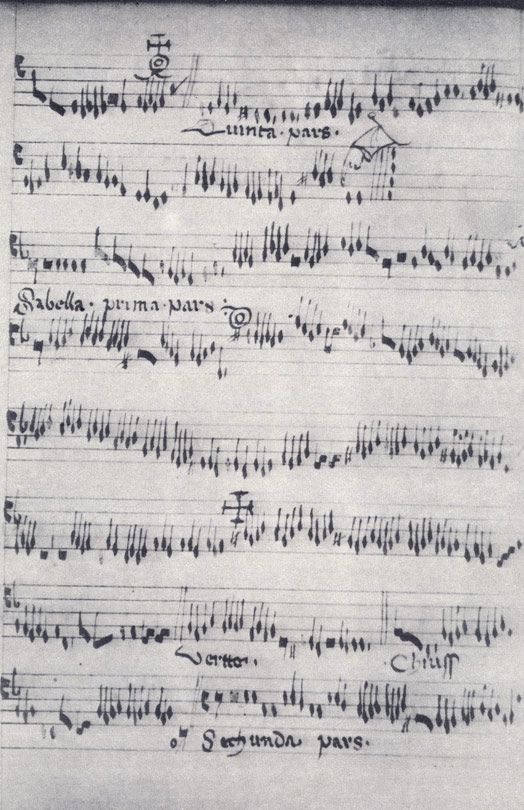 Quinta · pars ·
Isabella · prima · pars ·
Vertto ·
Chiuss
Sechunda pars ·